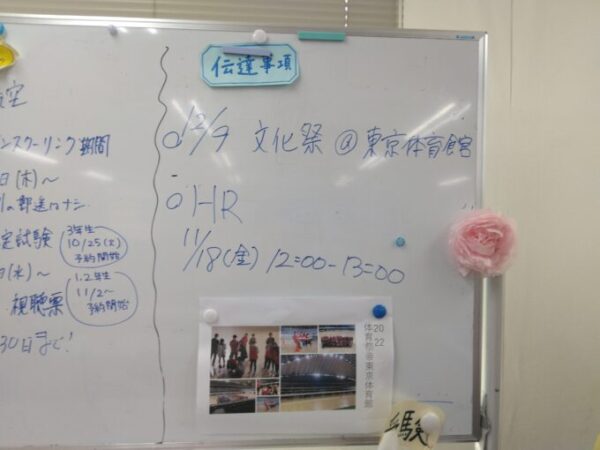 ンスクーリング期間
日(木)～
定試験
3年生
10/25(火)
予約開始
(水)～
視聴票
1.2年生
11/2～
予約開始
30日まで!
伝達事項
○12/9 文化祭 @東京体育館
○HR
11/18(金) 12:00-13:00
2022
体育祭@東京体育館
験